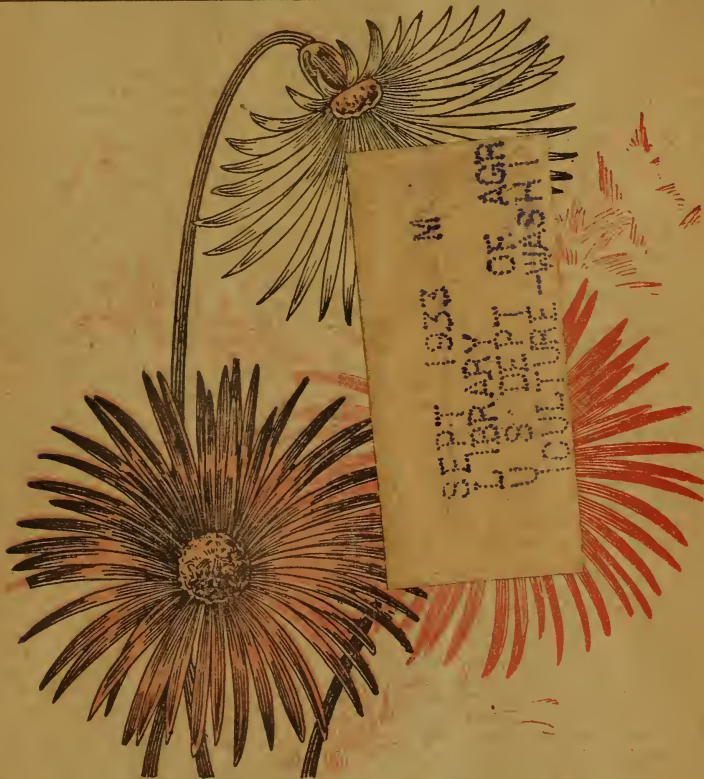 SEPT 1933 M
LIBRARY
U S DEPT OF AGR
ICULTURE-WASH